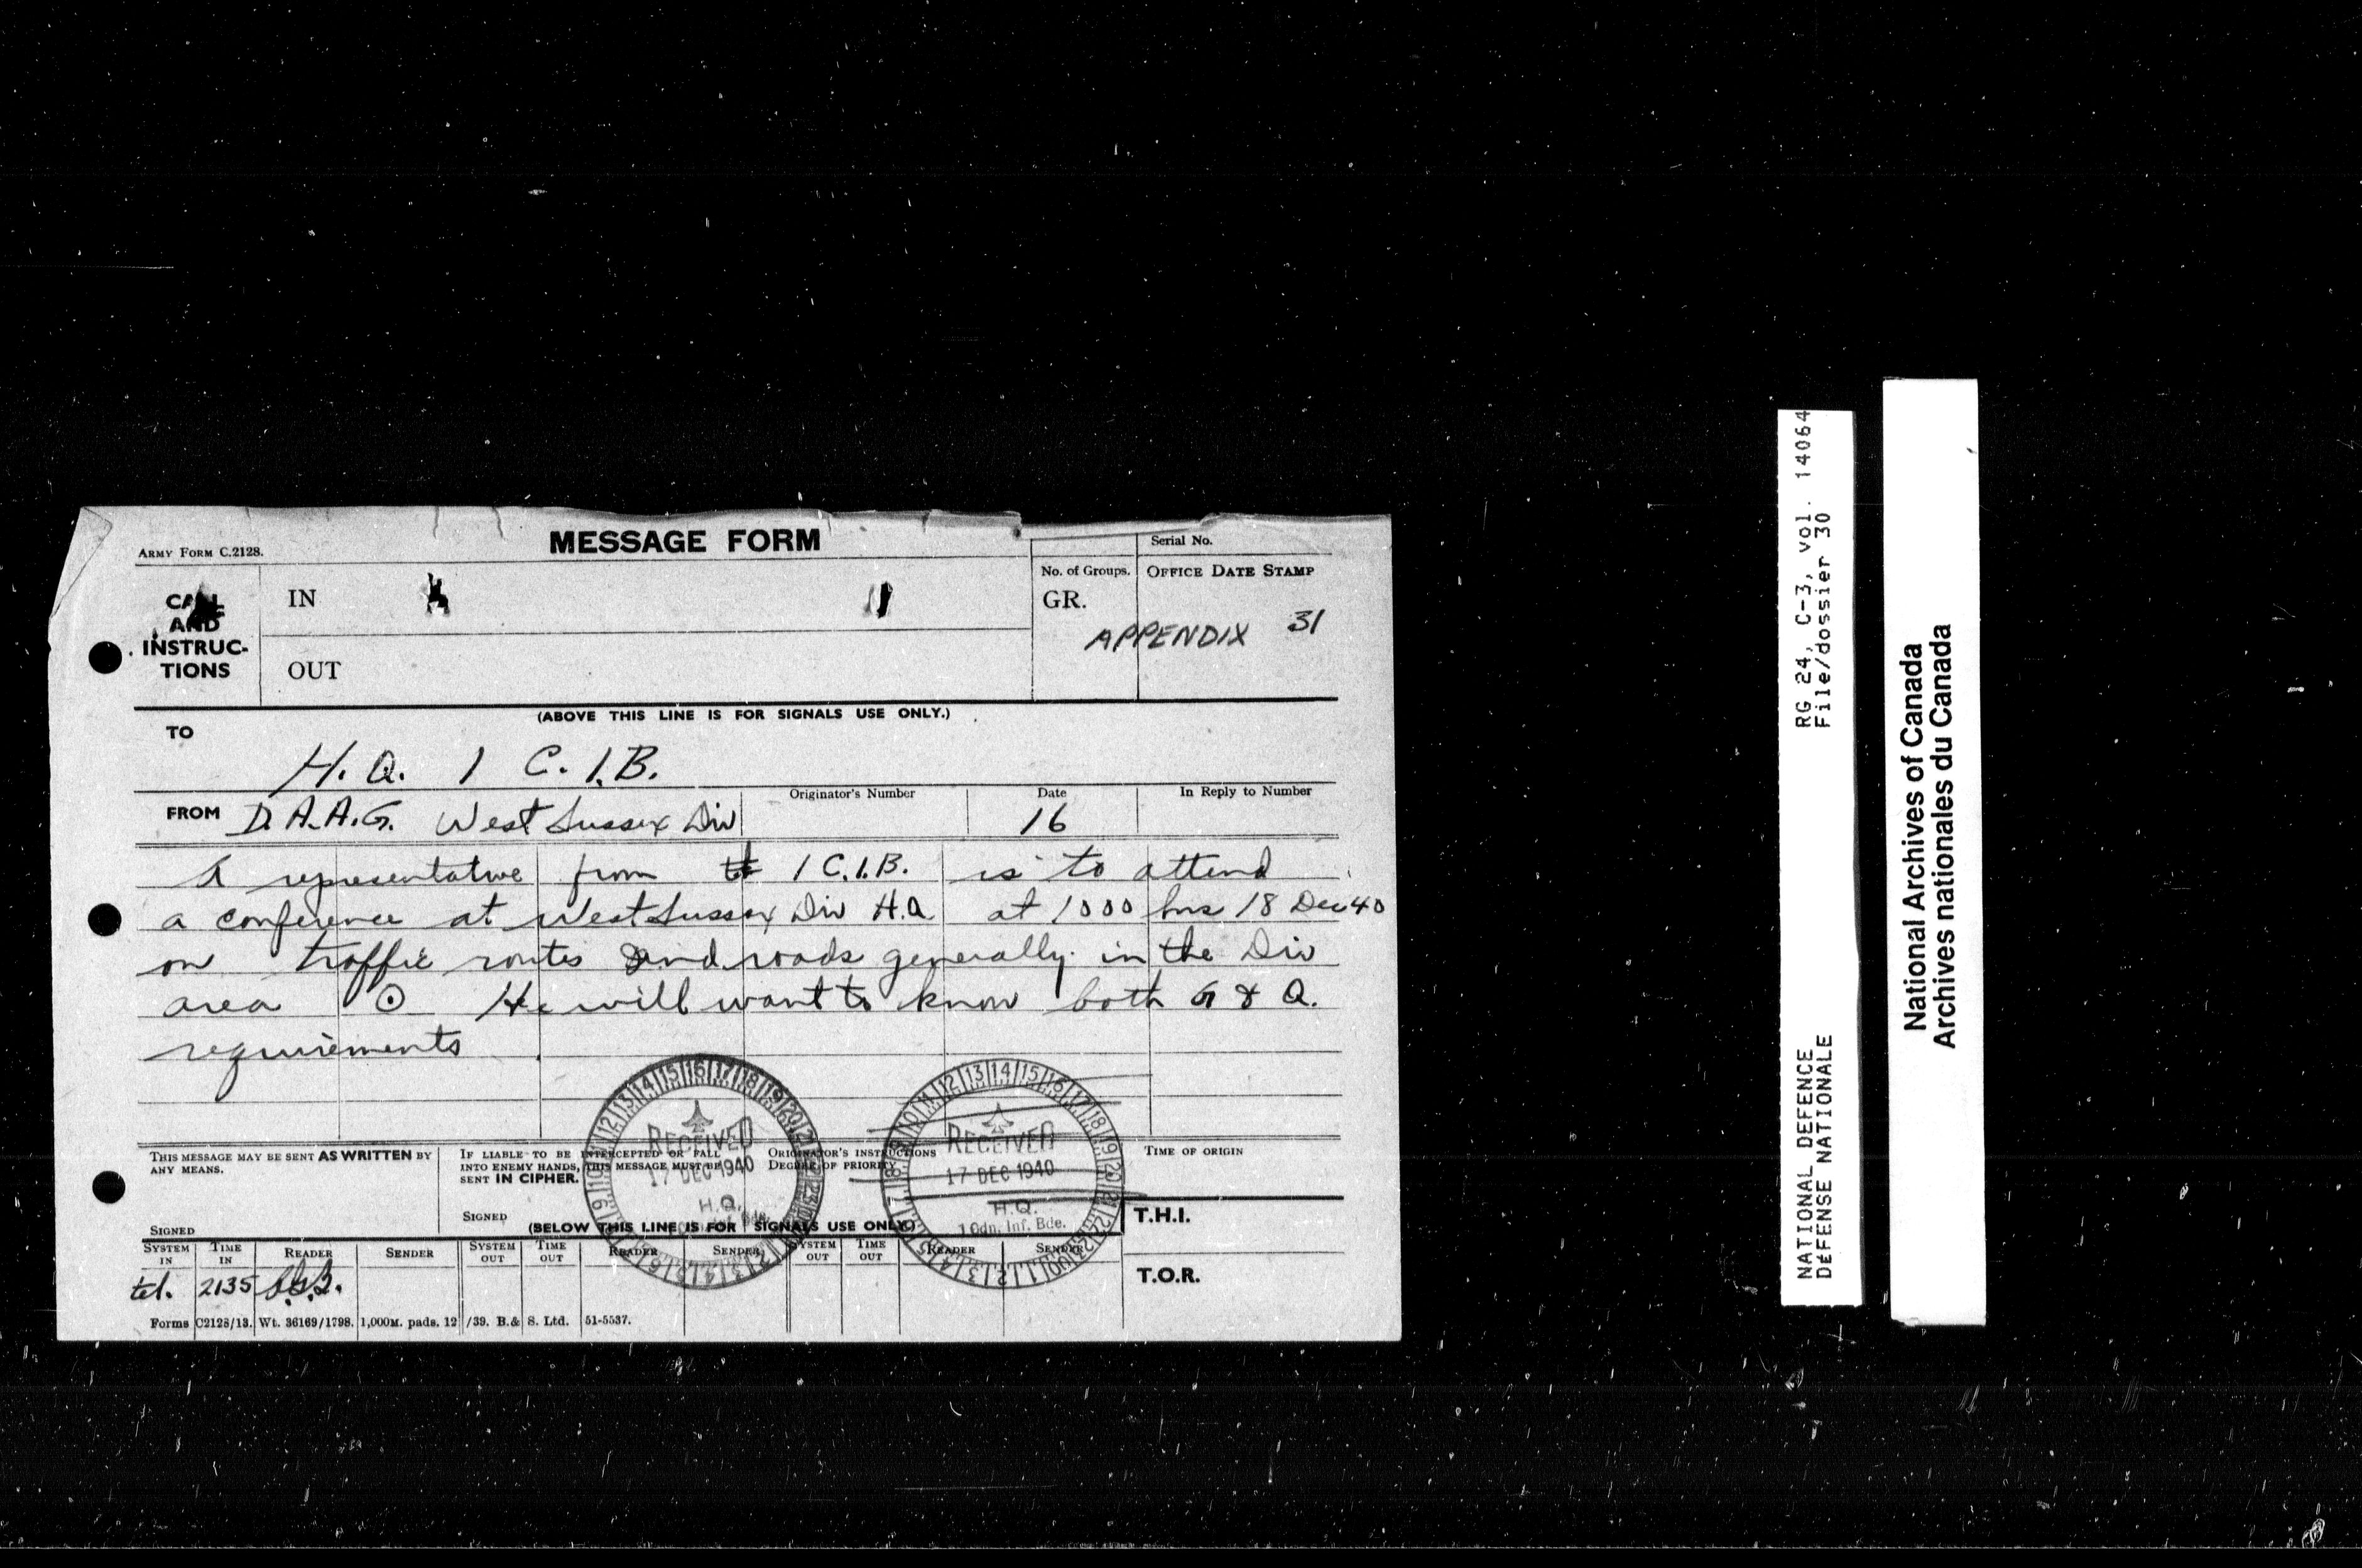 ARMY FORM C.2128.
MESSAGE FORM
Serial No.
CALL AND INSTRUC-TIONS
IN
No. of Groups.
GR.
OFFICE DATE STAMP
APPENDIX 31
OUT
(ABOVE THIS LINE IS FOR SIGNALS USE ONLY.)
TO
H.Q. 1 C.I.B.
FROM D.A.A.G. West Sussex Div
Originator's Number
Date
16
In Reply to Number
A representative from 1 C.I.B. is to attend
a conference at West Sussex Div H.Q at 1000 hrs 18 Dec 40
on traffic routes and roads generally in the Div
area ⊙ He will want to know both G & Q.
requirements
THIS MESSAGE MAY BE SENT AS WRITTEN BY
ANY MEANS.
SIGNED
IF LIABLE TO BE INTERCEPTED OR FALL
INTO ENEMY HANDS, THIS MESSAGE MUST BE
SENT IN CIPHER.
SIGNED
ORIGINATOR'S INSTRUCTIONS
DEGREE OF PRIORITY
TIME OF ORIGIN
RECEIVED
17 DEC 1940
H.Q.
RECEIVED
17 DEC 1940
H.Q.
1 Cdn. Inf. Bde.
(BELOW THIS LINE IS FOR SIGNALS USE ONLY)
T.H.I.
SYSTEM IN
TIME IN
READER
SENDER
SYSTEM OUT
TIME OUT
READER
SENDER
SYSTEM OUT
TIME OUT
READER
SENDER
T.O.R.
tel. 2135
Forms C2128/13. Wt. 36169/1798. 1,000M. pads. 12/39. B. & S. Ltd. 51-5537.
NATIONAL DEFENCE RG 24, C-3, vol. 14064
DÉFENSE NATIONALE File/dossier 30
National Archives of Canada
Archives nationales du Canada